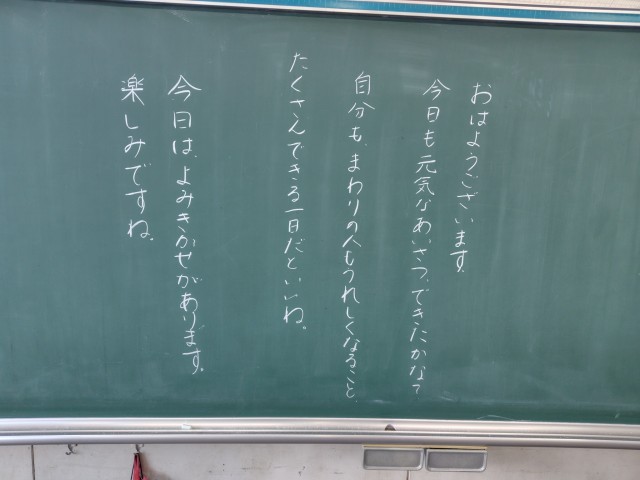 おはようございます。
今日も元気なあいさつ、できたかな?
自分も、まわりの人もうれしくなること、
たくさんできる一日だといいね。
今日は、よみきかせがあります。
楽しみですね。